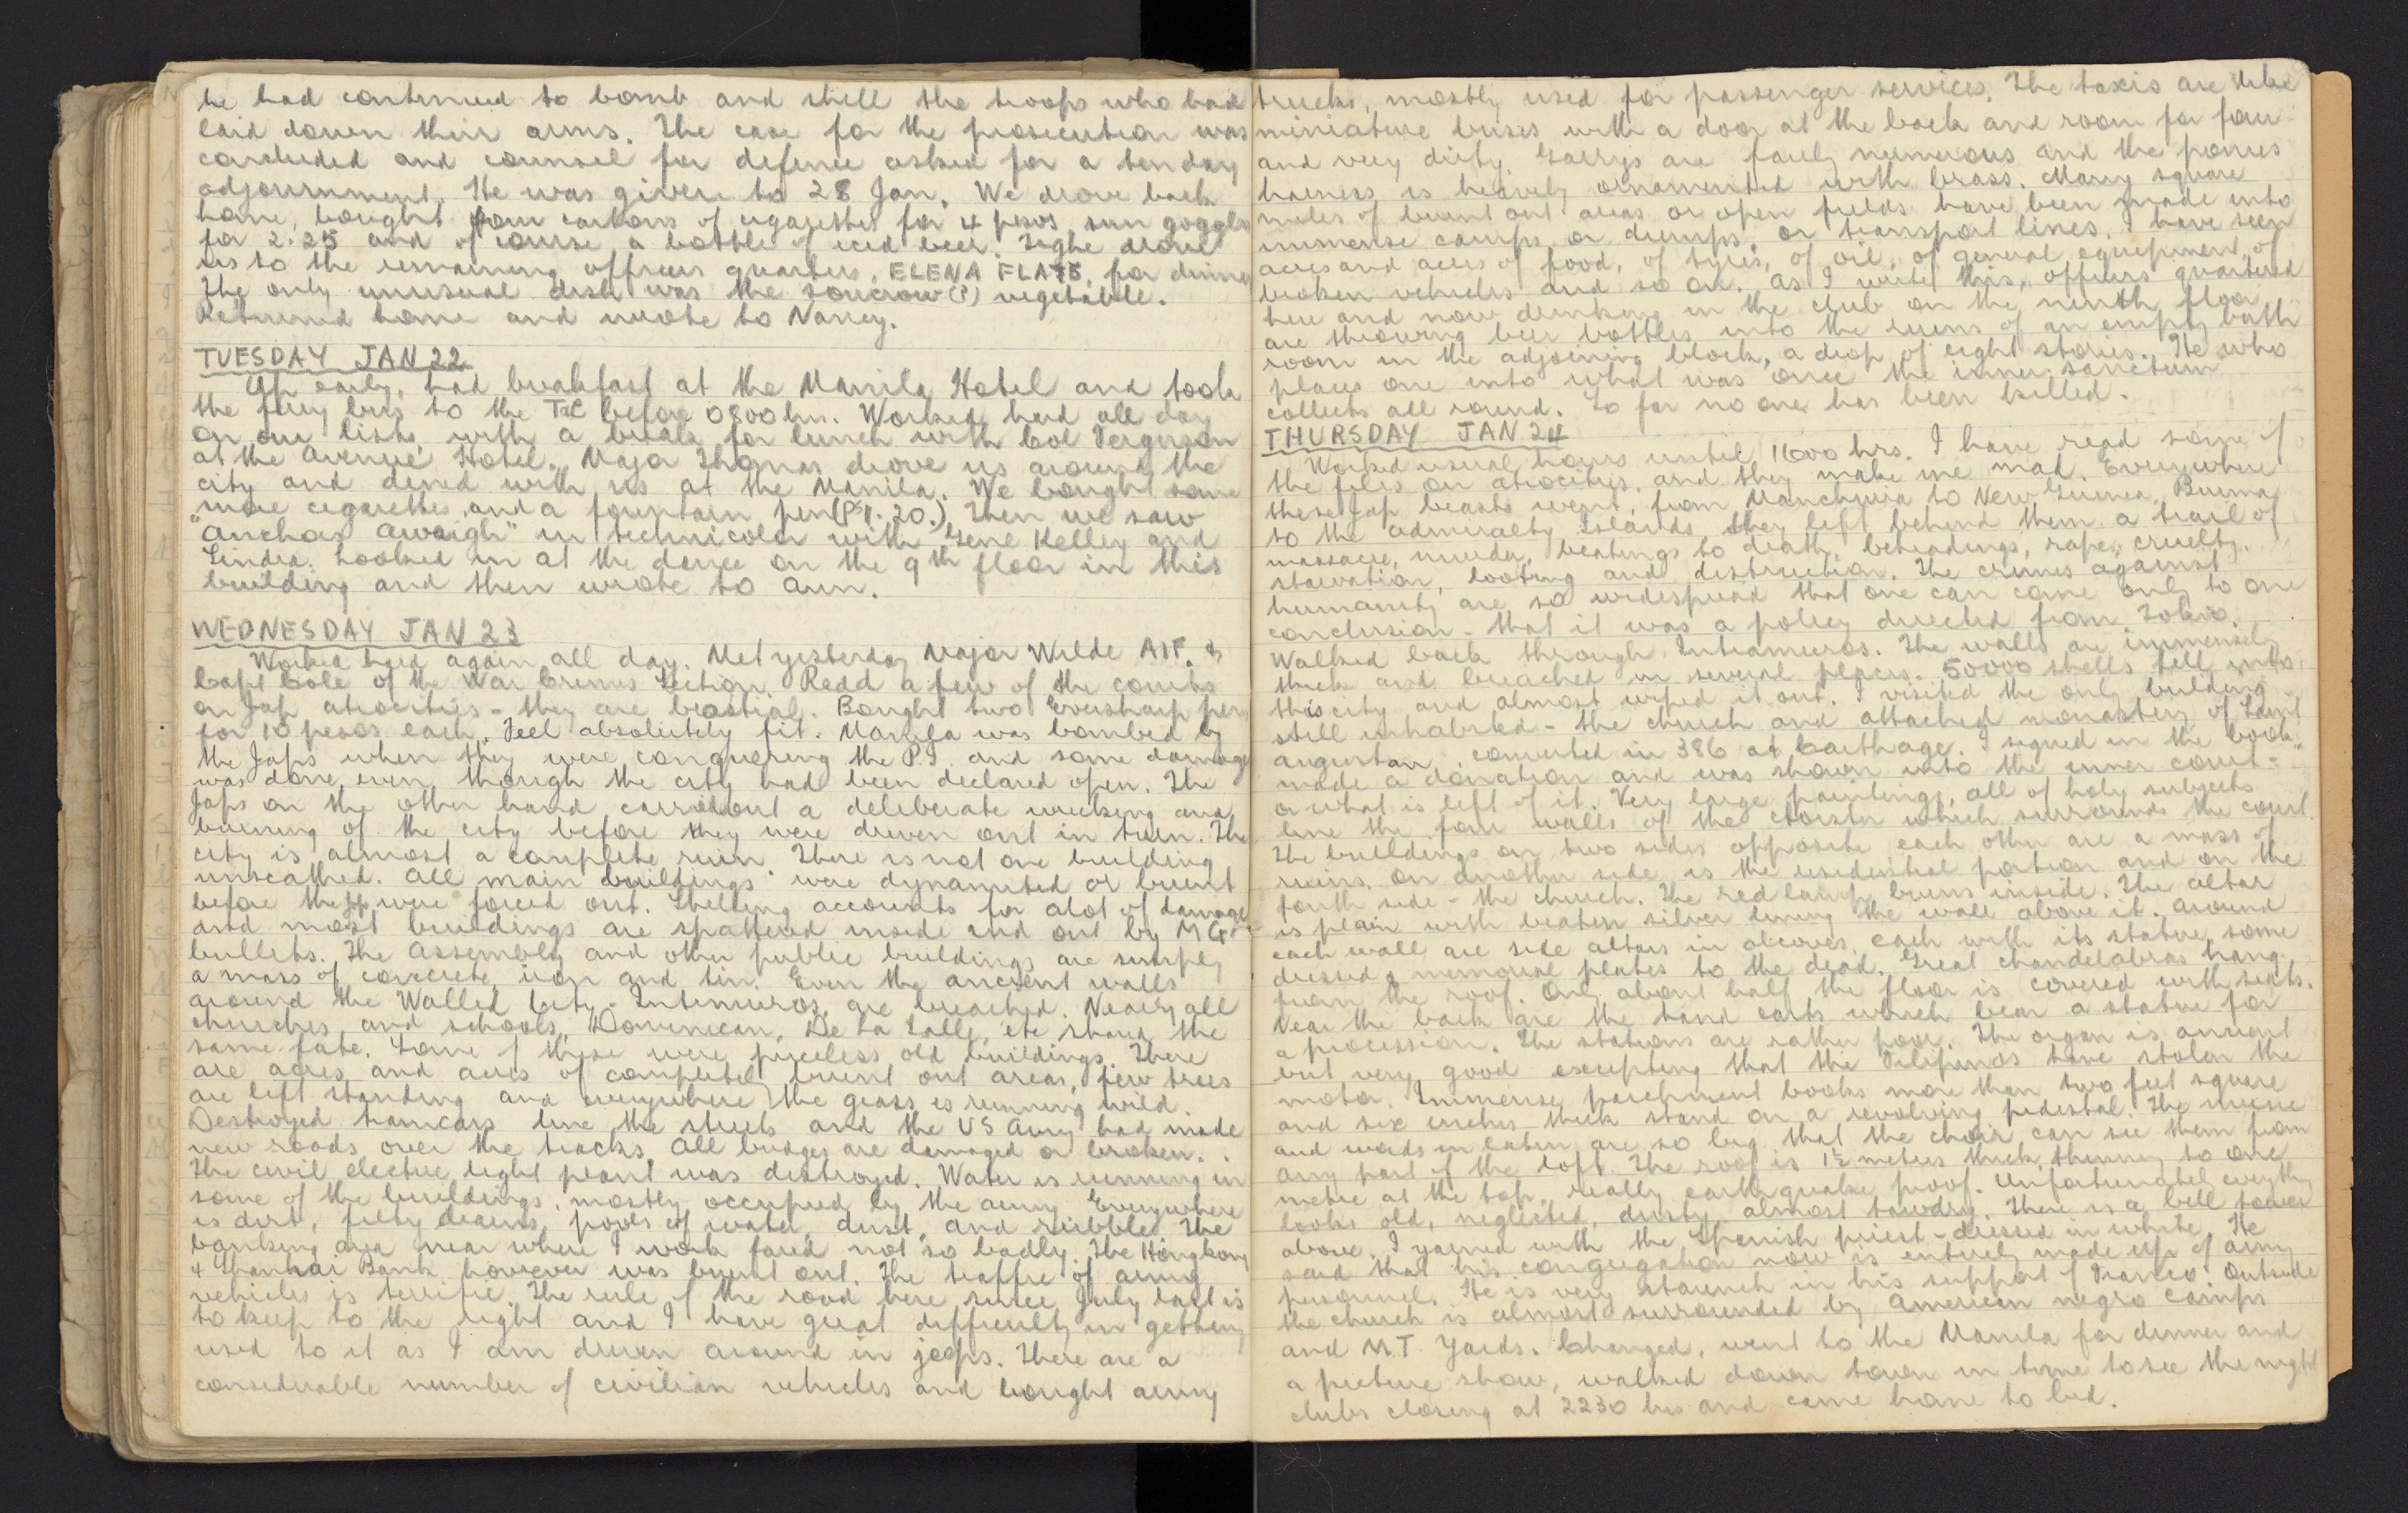 he had continued to bomb and shell the troops who had
laid down their arms. The case for the prosecution was
concluded and counsel for defence asked for a ten day
adjournment. He was given to 28 Jan. We drove back
home, bought four cartons of cigarettes for 4 pesos, sun goggles
for 2.25 and of course a bottle of iced beer. drove
us to the remaining officers quarters, ELENA FLATS, for dinner
The only unusual dish was the (?) vegetable.
Returned home and wrote to Nancy.
TUESDAY JAN 22
Up early, had breakfast at the Manila Hotel and took
the bus to the before 0800 hrs. Worked hard all day
on our lists with a break for lunch with Col Ferguson
at the Avenue Hotel. Major Thomas drove us around the
city and dined with us at the Manila. We bought some
more cigarettes and a fountain pen (P 1.20.) Then we saw
"Anchors Aweigh" in technicolor with Gene Kelley and
Looked in at the dance on the 9th floor in this
building and then wrote to
WEDNESDAY JAN 23
Worked hard again all day. Met yesterday Major Wilde AIF. &
Capt Cole of the War Crimes Section. Read a few of the counts
on Jap atrocities - they are beastial. Bought two Eversharp pens
for 10 pesos each. Feel absolutely fit. Manila was bombed by
the Japs when they were conquering the P.I. and some damage
was done even though the city had been declared open. The
Japs on the other hand carried out a deliberate wrecking and
burning of the city before they were driven out in turn. The
city is almost a complete ruin. There is not one building
unscathed. All main buildings were dynamited or burnt
before the Japs were forced out. Shelling accounts for alot of damage
and most buildings are spattered inside and out by MG
bullets. The Assembly and other public buildings are simply
a mass of concrete, iron and tin. Even the ancient walls
around the Walled City - Intramuros, are breached. Nearly all
churches and schools, Dominican, De La Salle, etc share the
same fate. Some of these were priceless old buildings. There
are acres and acres of completely burnt out areas, few trees
are left standing and everywhere the grass is running wild.
Destroyed tramcars line the streets and the US Army had made
new roads over the tracks. All bridges are damaged or broken.
The civil electric light plant was destroyed. Water is running in
some of the buildings, mostly occupied by the army. Everywhere
is dirt, filthy drains, pools of water, dust, and rubble. The
banking area near where I work fared not so badly. The Hongkong
& Shanhai Bank however was burnt out. The traffic of army
vehicles is terrific. The rule of the road here since July last is
to keep to the right and I have great difficulty in getting
used to it as I am driven around in jeeps. There are a
considerable number of civilian vehicles and bought army
trucks, mostly used for passenger services. The taxis are like
miniature buses with a door at the back and room for four
and very dirty. Garrys are fairly numerous and the ponies
harness is heavily ornamented with brass. Many square
miles of burnt out areas or open fields have been made into
immense camps or dumps, or transport lines. I have seen
acres and acres of food, of tyres, of oil, of general equipment, of
broken vehicles and so on. As I write this, officers quartered
here and now drinking in the club on the ninth floor,
are throwing beer bottles into the ruins of an empty bath
room in the adjoining block, a drop of eight stories. He who
places one into what was once the inner sanctum
collects all round. So far no one has been killed.
THURSDAY JAN 24
Worked usual hours until 1600 hrs. I have read some of
the files on atrocities, and they make me mad. Everywhere
these Jap beasts went, from Manchuria to New Guinea, Burma
to the Admiralty Islands they left behind them a trail of
massacre, murder, beatings to death, beheadings, rape, cruelty,
starvation, looting and destruction. The crimes against
humanity are so widespread that one can come only to one
conclusion - that it was a policy directed from Tokio.
Walked back through Intramuros. The walls are immensely
thick and breached in several places. 50000 shells fell into
this city and almost wiped it out. I visited the only building
still inhabited - the church and attached monastery of Saint
Augustan, converted in 386 at Carthage. I signed in the book,
made a donation and was shown into the inner court -
or what is left of it. Very large paintings, all of holy subjects
line the four walls of the which surrounds the court.
The buildings on two sides opposite each other are a mass of
ruins. On another side is the residential portion and on the
fourth side - the church. The red lamp burns inside. The altar
is plain with beaten silver lining the wall above it. Around
each wall are side altars in alcoves, each with its statue, some
dressed & memorial plates to the dead. Great chandelabras hang
from the roof. Only about half the floor is covered with seats.
Near the back are the hand carts which bear a statue for
a procession. The stations are rather poor. The organ is ancient
but very good excepting that the Filipinos have stolen the
motor. Immense parchment books more than two feet square
and six inches thick stand on a revolving pedestal. The music
and words in latin are so big that the choir can see them from
any part of the loft. The roof is 1½ metres thick, thinning to one
metre at the top, really earthquake proof. Unfortunately everything
looks old, neglected, dusty, almost tawdry. There is a bell tower
above. I yarned with the Spanish priest - dressed in white. He
said that his congregation now is entirely made up of army
personnel. He is very staunch in his support of Franco. Outside
the church is almost surrounded by American negro camps
and M.T. Yards. Changed, went to the Manila for dinner and
a picture show, walked down town in time to see the night
clubs closing at 2230 hrs and came home to bed.